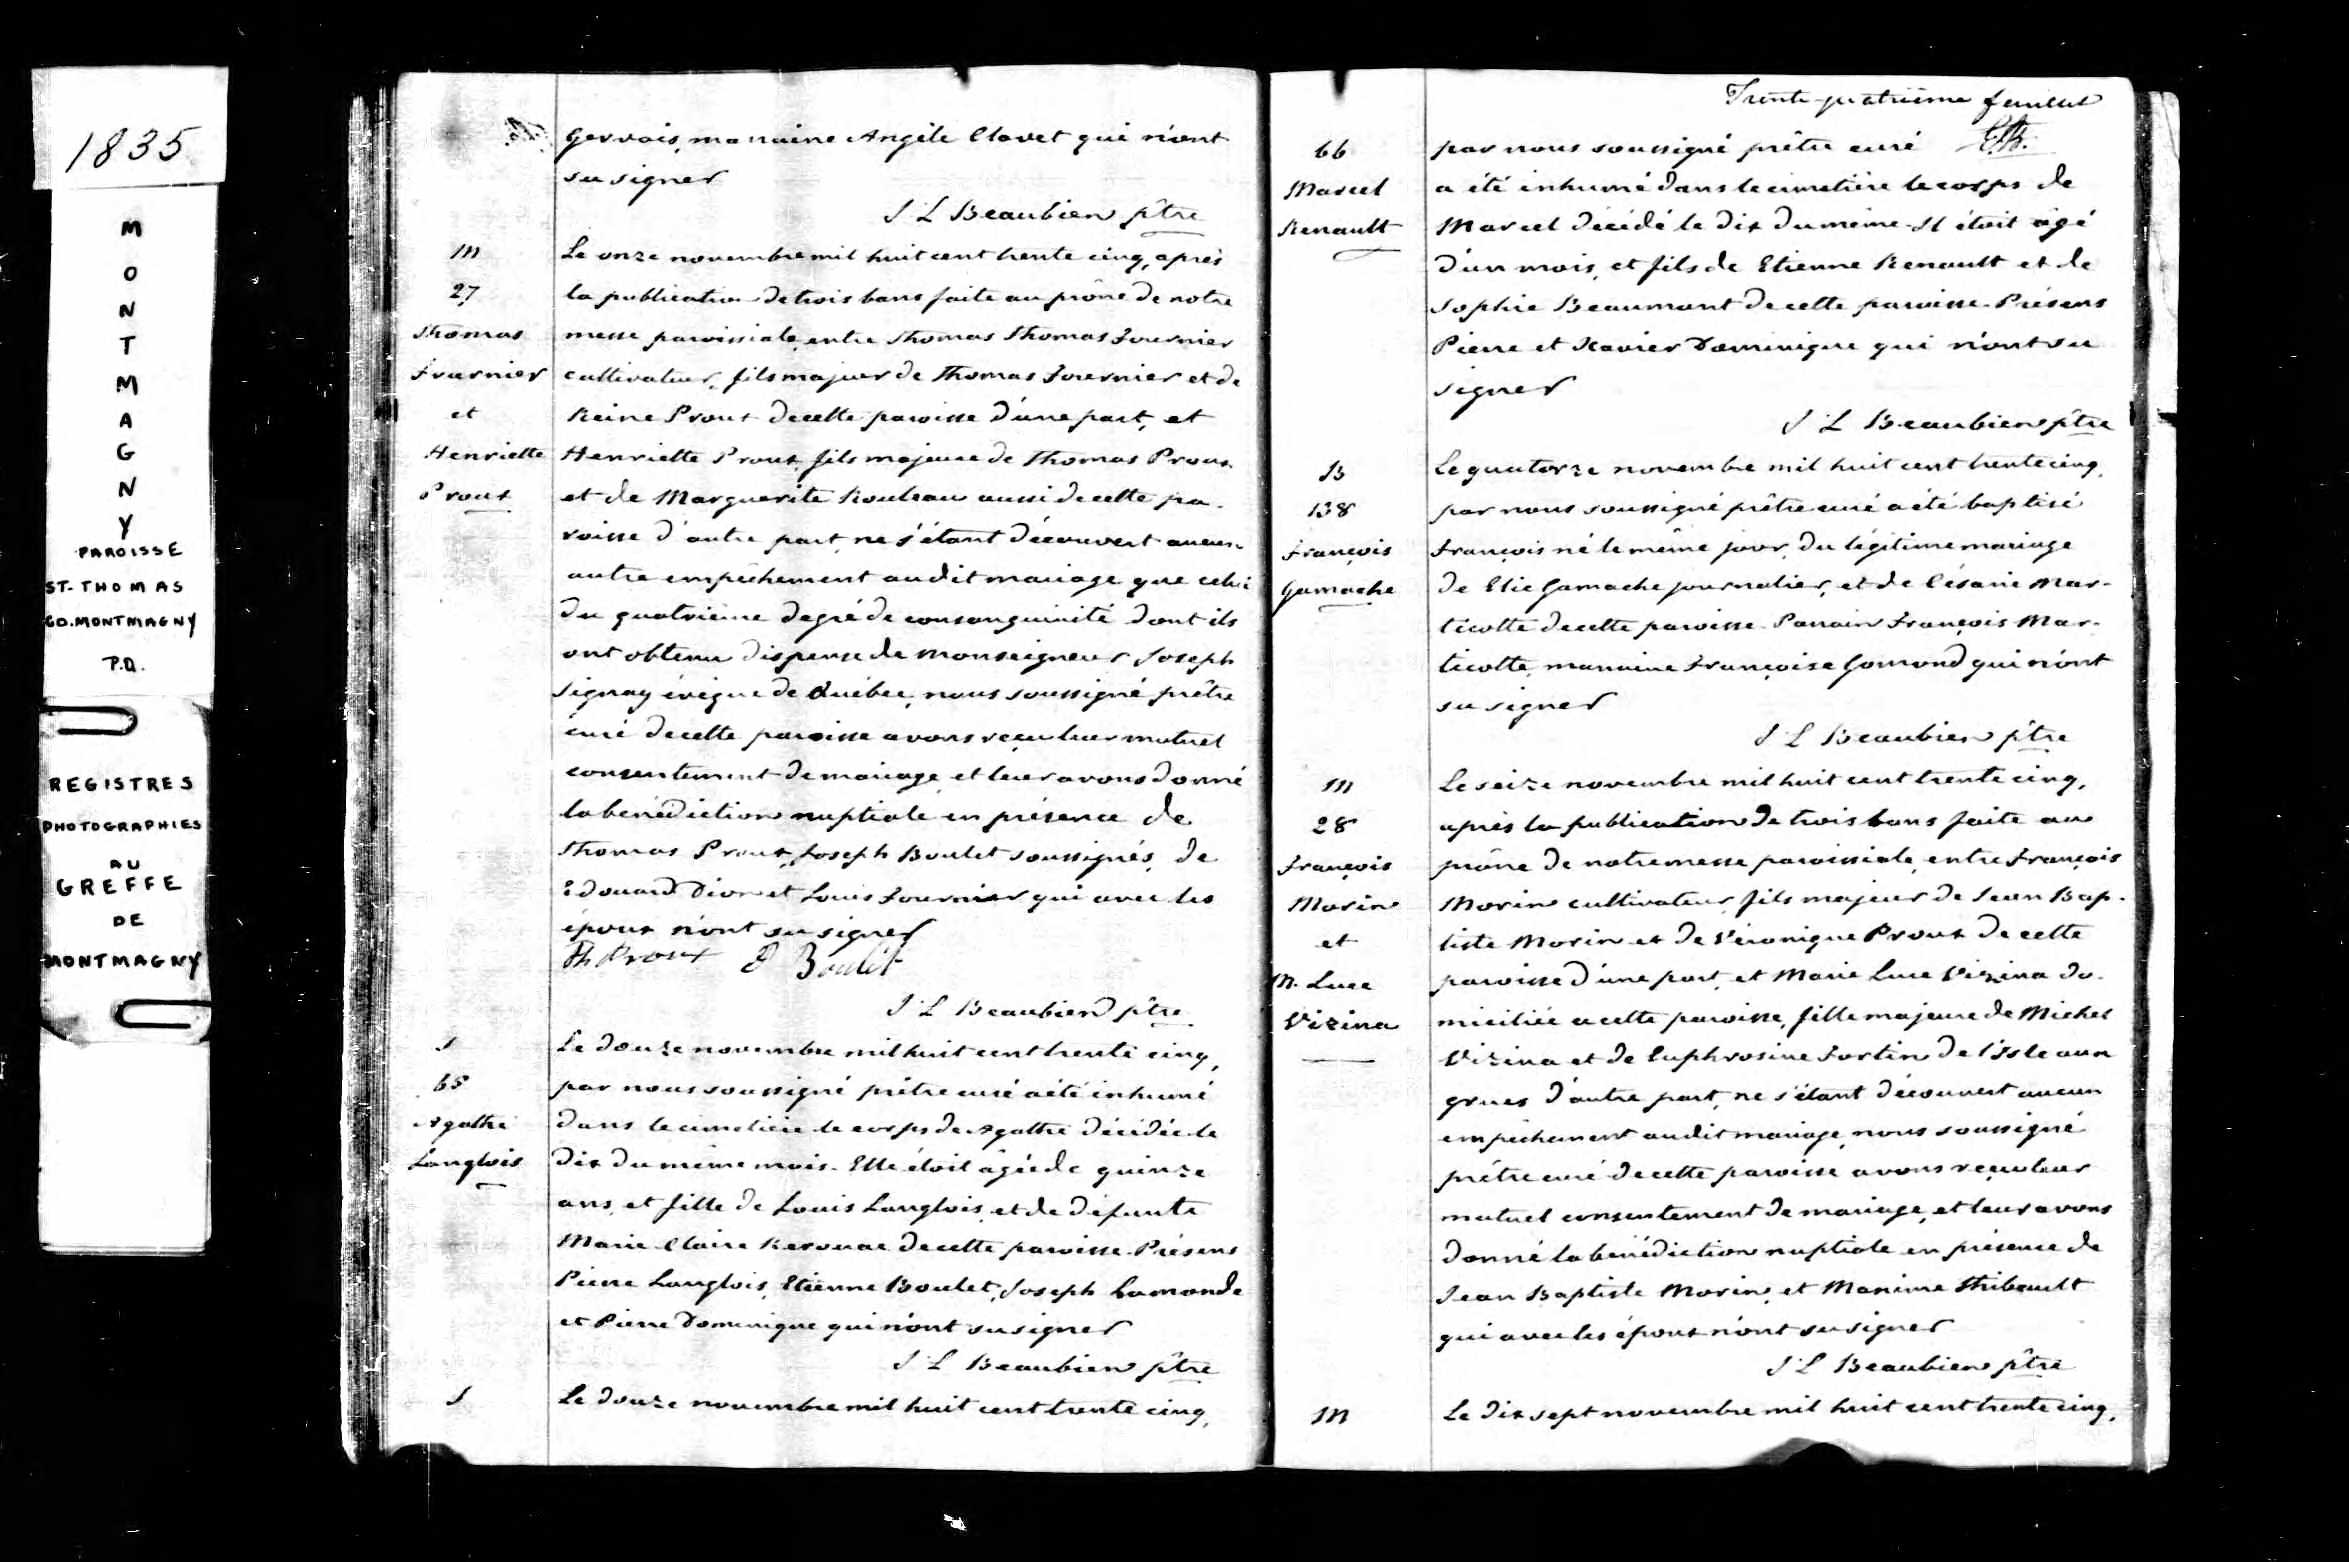 1835
M
O
N
T
M
A
G
N
Y
PAROISSE
ST-THOMAS
CO. MONTMAGNY
P.Q.
REGISTRES
PHOTOGRAPHIES
AU
GREFFE
DE
MONTMAGNY
Gervais, marraine Angèle Clavet qui n'ont
su signer
J L Beaubien ptre
M
27
Thomas
Fournier
et
Henriette
Proux
Le onze novembre mil huit cent trente cinq, après
la publication de trois bans faite au prône de notre
messe paroissiale, entre Thomas Thomas Fournier
cultivateur, fils majeur de Thomas Fournier et de
Reine Proux de cette paroisse d'une part, et
Henriette Proux, fils majeure de Thomas Proux
et de Marguerite Rouleau aussi de cette pa-
roisse d'autre part, ne s'étant découvert aucun
autre empêchement audit mariage que celui
du quatrième degré de consanguinité dont ils
ont obtenu dispense de Monseigneur Joseph
Signay évêque de Québec, nous soussigné prêtre
curé de cette paroisse avons reçu leur mutuel
consentement de mariage, et leur avons donné
la bénédiction nuptiale en présence de
Thomas Proux, Joseph Boulet soussignés, de
Edouard Dion et Louis Fournier qui avec les
époux n'ont su signer
Th Proux J Boulet
J L Beaubien ptre
S
65
Agathe
Langlois
Le douze novembre mil huit cent trente cinq,
par nous soussigné prêtre curé a été inhumé
dans le cimetière le corps de Agathe décédée le
dix du même mois. Elle étoit âgée de quinze
ans, et fille de Louis Langlois, et de défunte
Marie Claire Kerouac de cette paroisse. Présens
Pierre Langlois, Etienne Boulet, Joseph Lamonde
et Pierre Dominique qui n'ont su signer
J L Beaubien ptre
S
Le douze novembre mil huit cent trente cinq,
Trente-quatrième feuillet
66
Marcel
Renault
par nous soussigné prêtre curé
a été inhumé dans le cimetière le corps de
Marcel décédé le dix du même. Il étoit âgé
d'un mois, et fils de Etienne Renault et de
Sophie Beaumont de cette paroisse. Présens
Pierre et Xavier Dominique qui n'ont su
signer
J L Beaubien ptre
B
138
François
Gamache
Le quatorze novembre mil huit cent trente cinq,
par nous soussigné prêtre curé a été baptisé
François né le même jour, du légitime mariage
de Elie Gamache journalier, et de Césarie Mar-
ticotte de cette paroisse. Parrain François Mar-
ticotte, marraine Françoise Gomond qui n'ont
su signer
J L Beaubien ptre
M
28
François
Morin
et
M. Luce
Vizina
Le seize novembre mil huit cent trente cinq,
après la publication de trois bans faite au
prône de notre messe paroissiale, entre François
Morin cultivateur, fils majeur de Jean Bap-
tiste Morin et de Véronique Proux de cette
paroisse d'une part, et Marie Luce Vizina do-
miciliée a cette paroisse, fille majeure de Michel
Vizina et de Euphrosine Fortin de l'Isle aux
grues d'autre part, ne s'étant découvert aucun
empêchement audit mariage, nous soussigné
prêtre curé de cette paroisse avons reçu leur
mutuel consentement de mariage, et leur avons
donné la bénédiction nuptiale en présence de
Jean Baptiste Morin, et Maxime Thibault
qui avec les époux n'ont su signer
J L Beaubien ptre
M
Le dix sept novembre mil huit cent trente cinq,